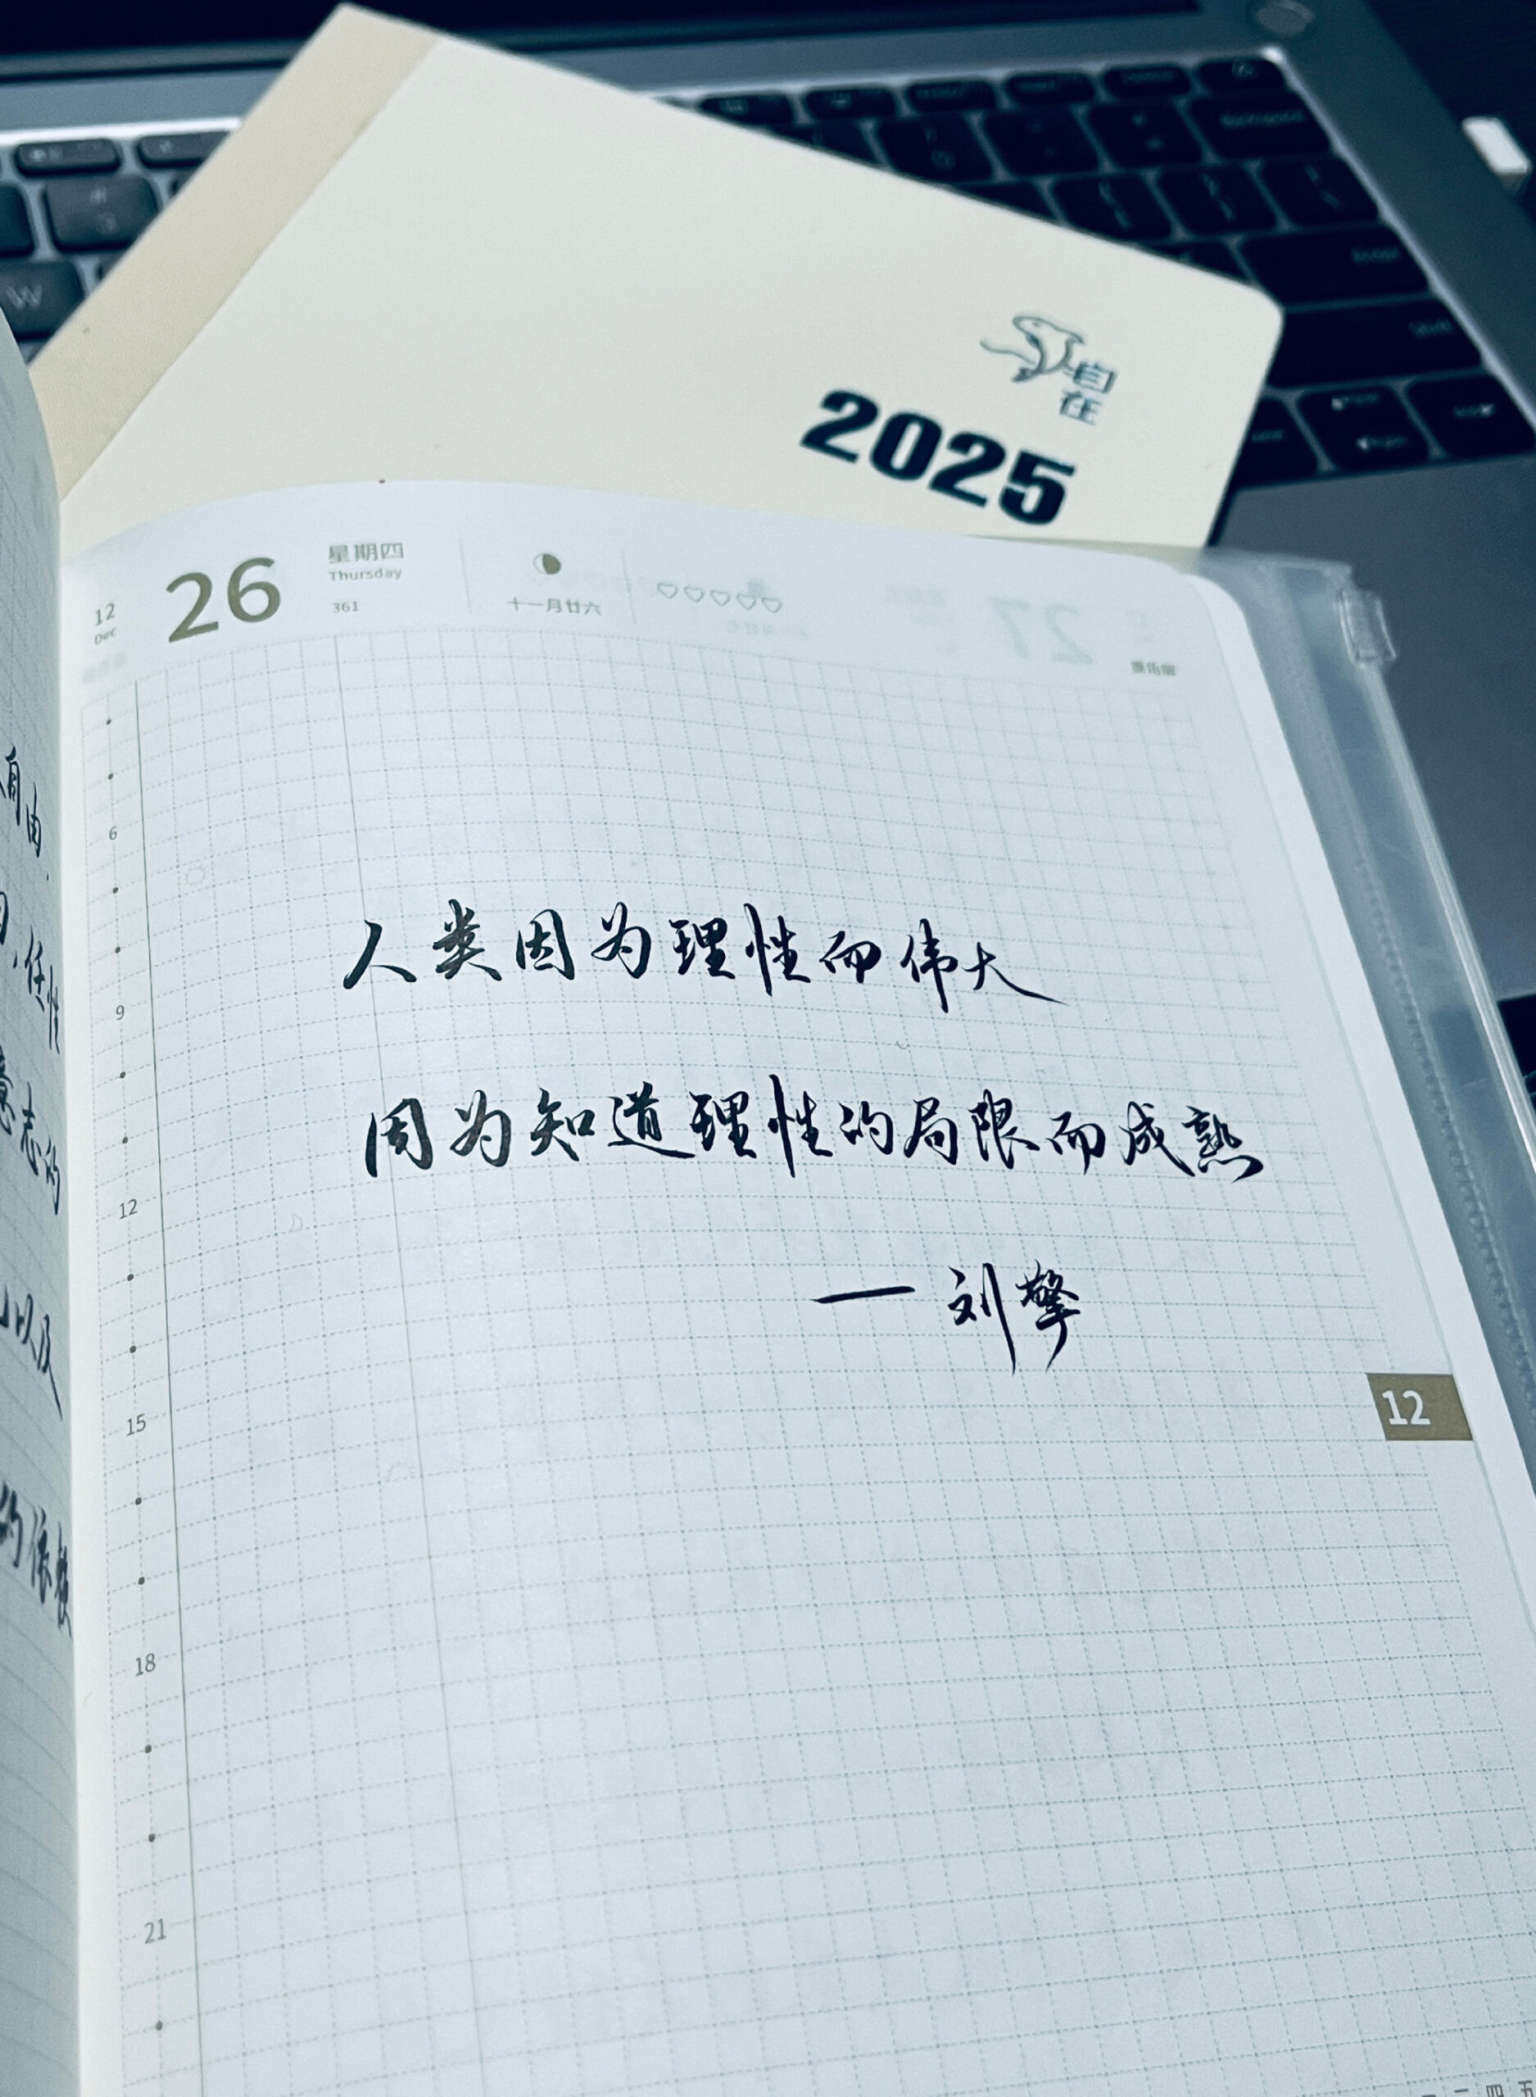 自在
2025
12
Dec
26
星期四
Thursday
361
十一月廿六
6
9
12
15
18
21
人类因为理性而伟大
因为知道理性的局限而成熟
— 刘擎
12
自由
任性
意志的
以及
的依赖
W